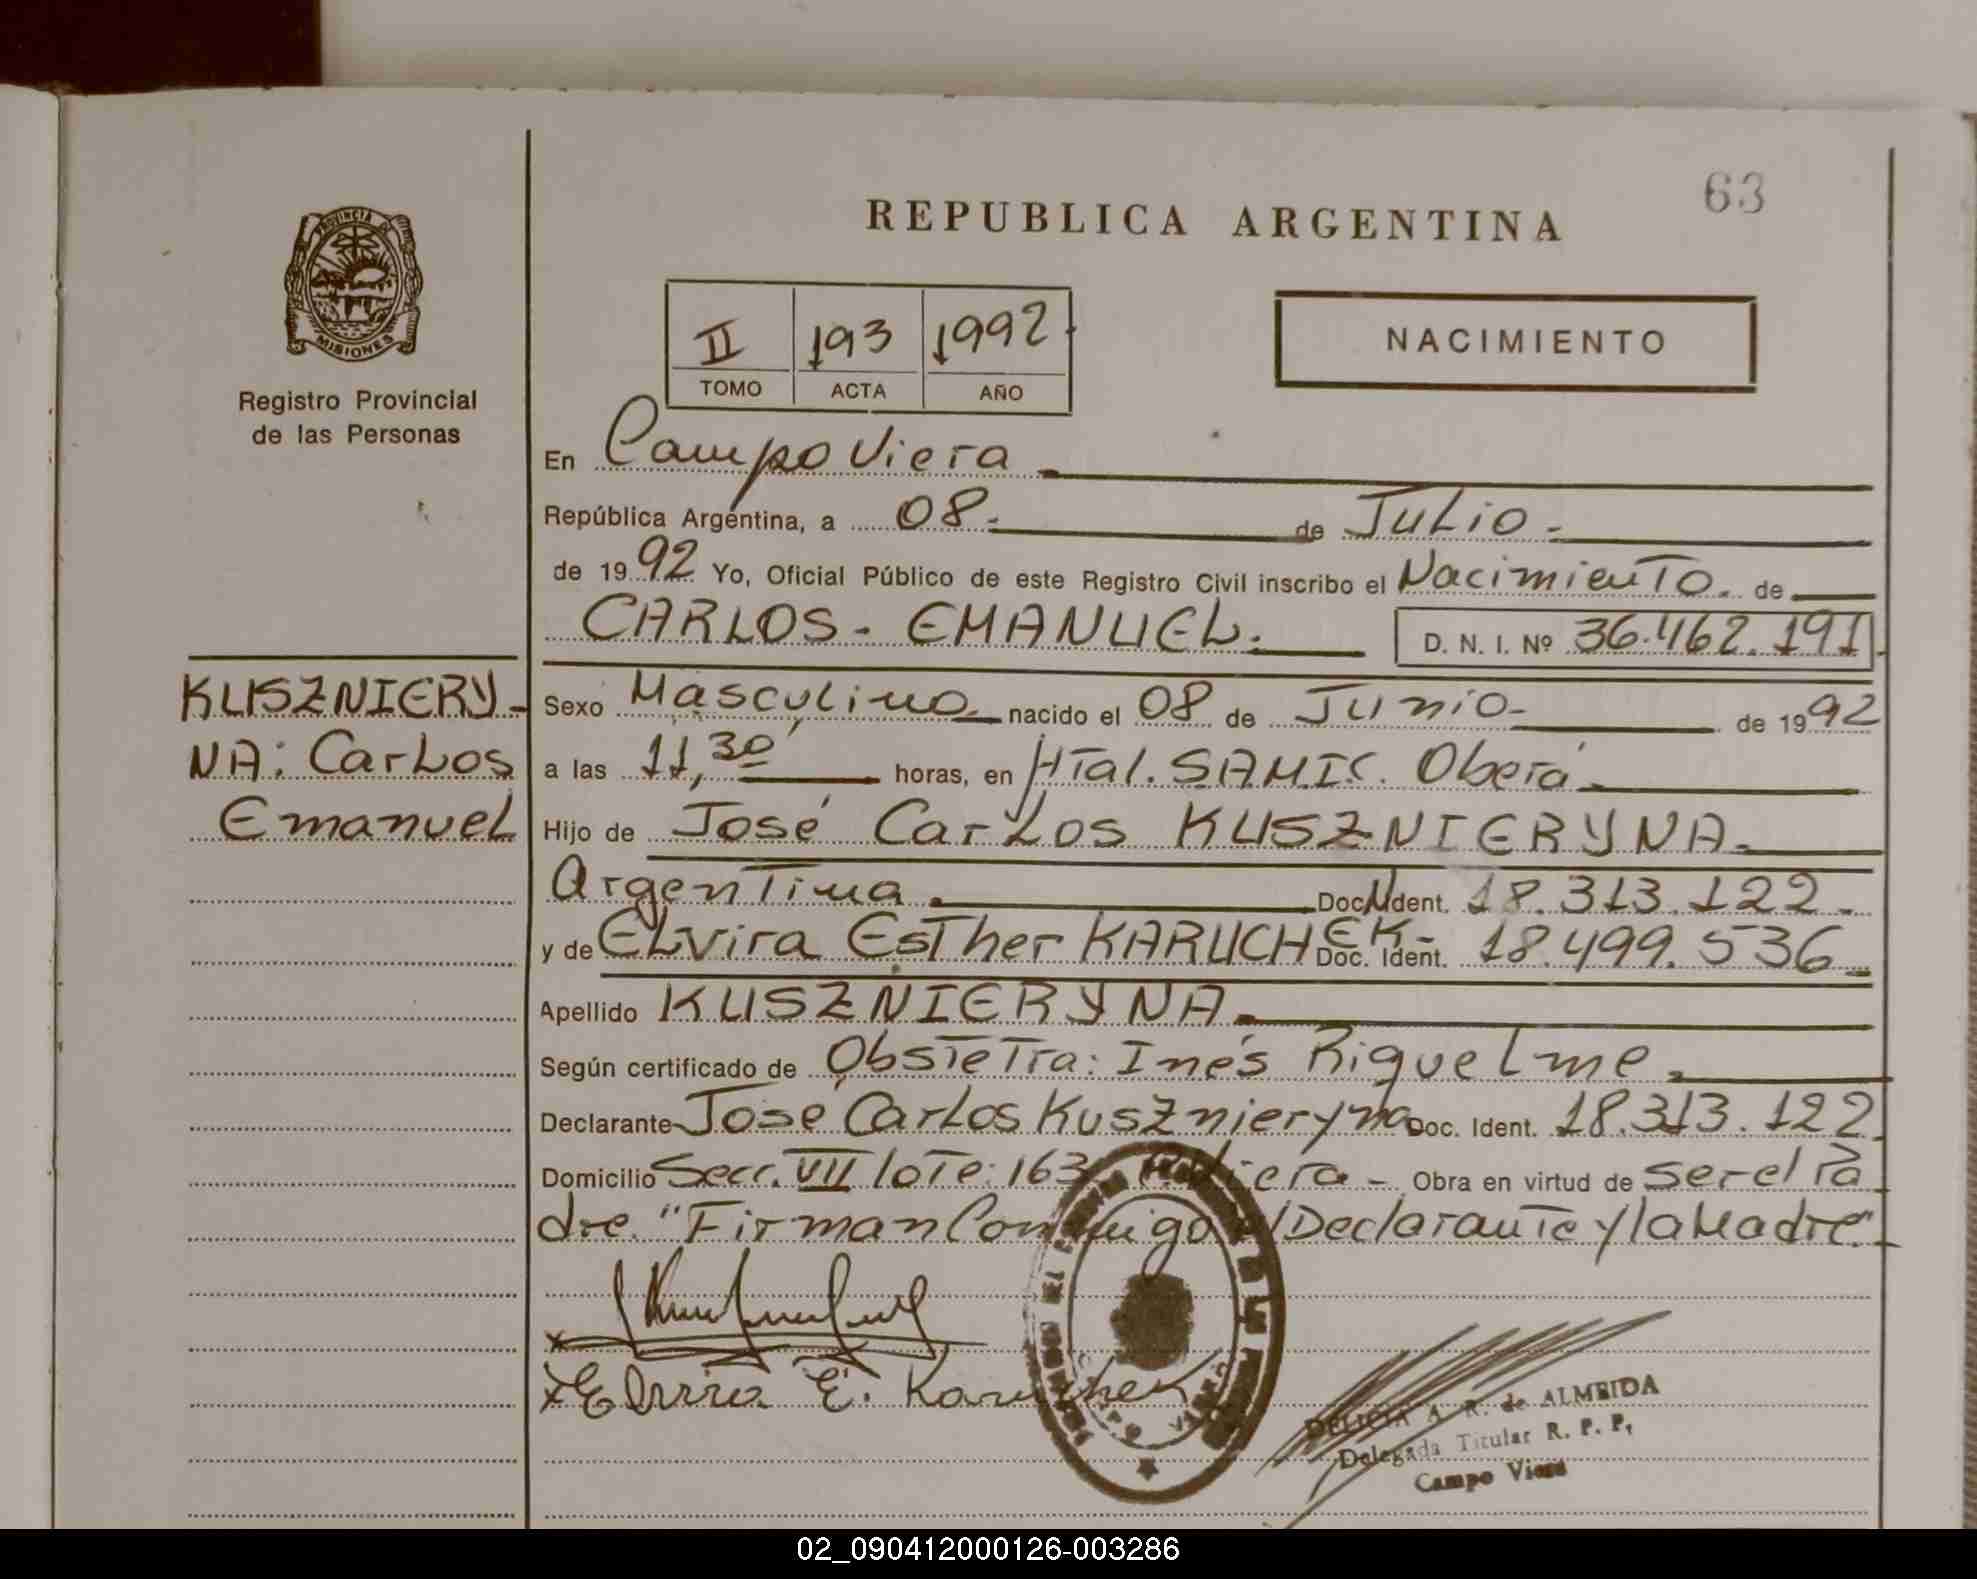 63
REPUBLICA ARGENTINA
PROVINCIA DE
MISIONES
Registro Provincial
de las Personas
II 193 1992
TOMO ACTA AÑO
NACIMIENTO
En Campo Viera
República Argentina, a 08 de Julio
de 1992 Yo, Oficial Público de este Registro Civil inscribo el Nacimiento de
CARLOS - EMANUEL. D. N. I. Nº 36.462.191
KUSZNIERY-
NA: Carlos
Emanuel
Sexo Masculino nacido el 08 de Junio de 1992
a las 11,30 horas, en Htal. SAMIC. Oberá
Hijo de José Carlos KUSZNIERYNA
Argentina Doc. Ident. 18.313.122
y de Elvira Esther KARUCHEK Doc. Ident. 18.499.536
Apellido KUSZNIERYNA
Según certificado de Obstetra: Inés Riquelme
Declarante José Carlos Kusznieryna Doc. Ident. 18.313.122
Domicilio Secc. VII lote: 163 Viera - Obra en virtud de ser el Pa
dre. "Firman Conmigo el Declarante y la Madre"
x Elvira E. Karuchek
DELICIA A. R. de ALMEIDA
Delegada Titular R. P. P.
Campo Viera
02_090412000126-003286